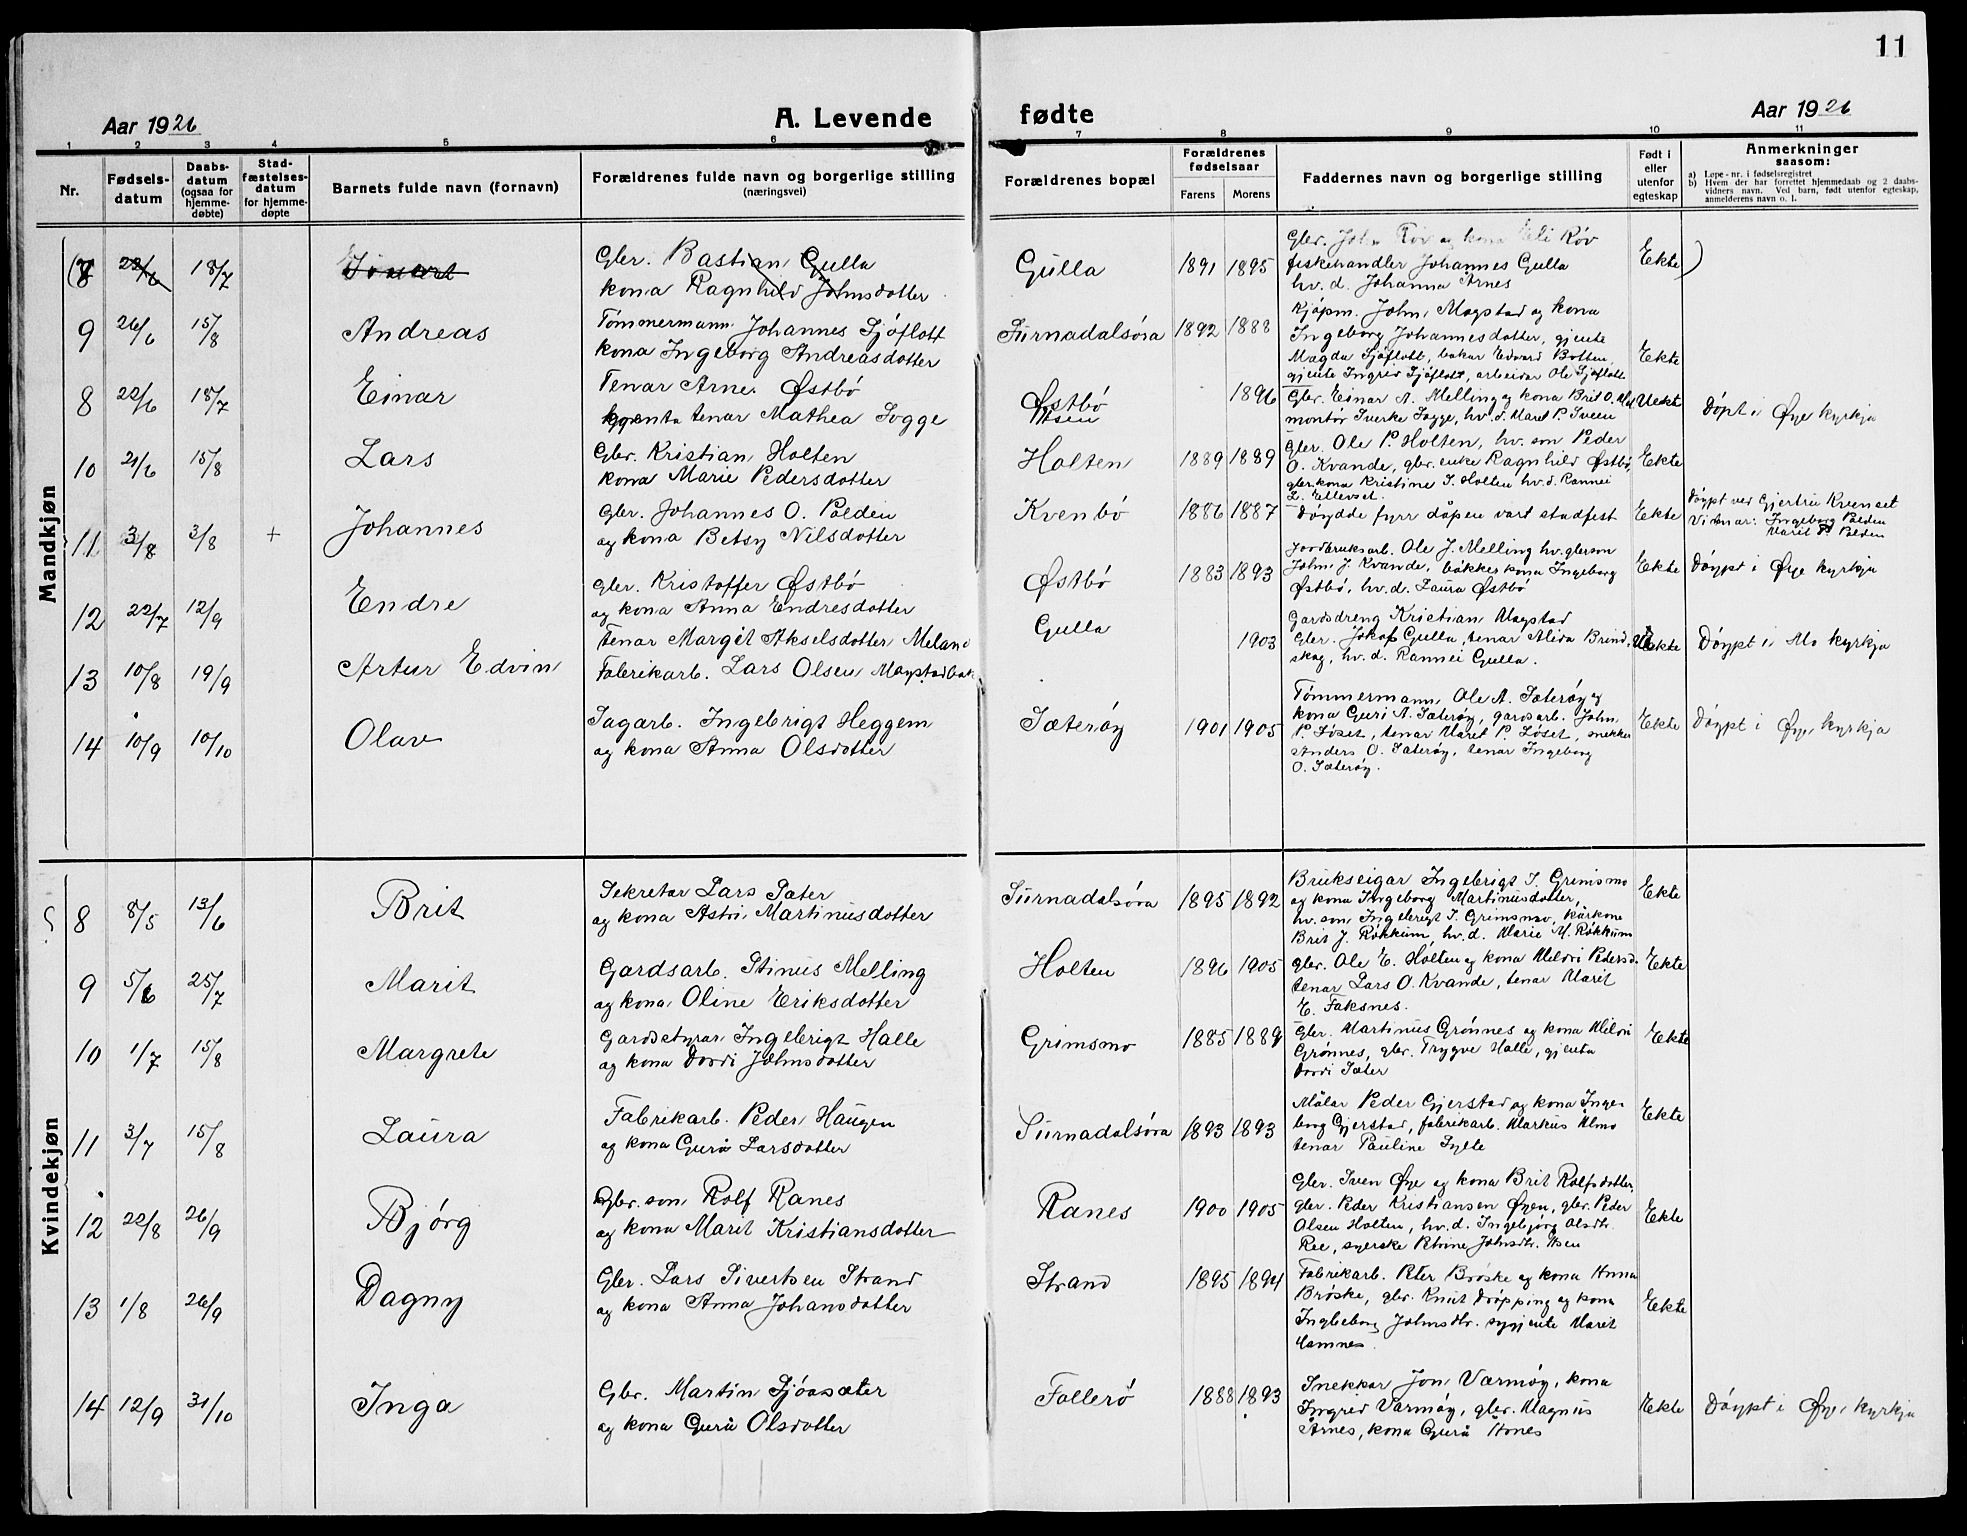 11
Aar 1926
A. Levende
fødte
Aar 1926
1 2 3 4 5 6 7 8 9 10 11
Nr.
Fødsels-
datum
Daabs-
datum
(ogsaa for
hjemme-
døbte)
Stad-
fæstelses-
datum
for hjemme-
døpte
Barnets fulde navn (fornavn)
Forældrenes fulde navn og borgerlige stilling
(næringsvei)
Forældrenes bopæl
Forældrenes
fødselsaar
Farens Morens
Faddernes navn og borgerlige stilling
Født i
eller
utenfor
egteskap
Anmerkninger
saasom:
a) Løpe-nr. i fødselsregistret
b) Hvem der har forrettet hjemmedaab og 2 daabs-
vidners navn. Ved barn, født utenfor egteskap,
anmelderens navn o. l.
Mandkjøn
(8 22/6 18/7
Gbr. Bastian Gulla
kona Ragnhild Johnsdotter
Gulla 1891 1895
Gbr. John Røv og kona Eli Røv
fiskehandler Johannes Gulla
hv. d. Johanna Årnes
Ekte)
9 26/6 15/8 Andreas
Tømmermann Johannes Sjøflott
kona Ingeborg Andreasdotter
Surnadalsøra 1892 1888
Kjøpm. John Magstad og kona
Ingeborg Johannesdotter, gjente
Magda Sjøflott, bakar Edvard Botten,
gjente Ingrid Sjøflott, arbeider Ole Sjøflott
Ekte
8 22/6 18/7 Einar
Tenar Arne Østbø
tenar Mathea Sogge
Østbø
1896
Gbr. Einar A. Melling og kona Brit O. Mel
montør Sverke Sogge, hv. d. Maret P. Sveen
Uekte
Døpt i Øye kyrkja
10 21/6 15/8 Lars
Gbr. Kristian Holten
kona Marie Pedersdotter
Holten 1889 1889
Gbr. Ole P. Holten, hv. son Peder
O. Kvande, gbr. enke Ragnhild Østbø,
gbr. kona Kristine S. Holten hv. d. Rannei
L. Ellevset.
Ekte
11 3/8 3/8 + Johannes
Gbr. Johannes O. Polden
og kona Betsy Nilsdotter
Kvenbø 1886 1887
Døydde fyrr dåpen vart stadfest
Ekte
Døypt ved Gjertru Kvenset
Vitnar: Ingeborg Polden
Marit P. Polden
12 22/7 12/9 Endre
Gbr. Kristoffer Østbø
og kona Anna Endresdotter
Østbø 1883 1893
Jordbruksarb. Ole J. Melling hv. gbrson
John J. Kvande, bakker kona Ingeborg
Østbø, hv. d. Laura Østbø
Ekte
Døypt i Øye kyrkja
13 10/8 19/9 Artur Edvin
Tenar Margit Akselsdotter Meland
Fabrikarb. Lars Olsen Magstadbak
Gulla
1903
Gardsdreng Kristian Magstad
Gbr. Jakop Gulla, tenar Alida Brind,
skag, hv. d. Rannei Gulla.
Uekte
Døypt i Mo kyrkja
14 10/9 10/10 Olav
Sagarb. Ingebrigt Heggem
og kona Anna Olsdotter
Sæterøy 1901 1905
Tømmermann Ole A. Sæterøy og
kona Guri A. Sæterøy, gardsarb. John
P. Løset, tenar Maret P. Løset, snekker
Anders O. Sæterøy, tenar Ingeborg
O. Sæterøy.
Ekte
Døypt i Øye kyrkja
Kvindekjøn
8 8/5 13/6 Brit
Sekretar Lars Sæter
og kona Astri Martinusdotter
Surnadalsøra 1895 1892
Brukseigar Ingebrigt S. Grimsmo
og kona Ingeborg Martinusdotter,
hv. son Ingebrigt S. Grimsmo, kårkone
Brit J. Røkkum, hv. d. Marie M. Røkkum
Ekte
9 5/6 25/7 Marit
Gardsarb. Stinus Melling
og kona Oline Eriksdotter
Holten 1896 1905
gbr. Ole E. Holten og kona Mildri Pedersd.
tenar Lars O. Kvande, tenar Marit
E. Faksnes.
Ekte
10 1/7 15/8 Margrete
Gardstyrar Ingebrigt Halle
og kona Dordi Johnsdotter
Grimsmo 1885 1889
Gbr. Martinus Grønnes og kona Mildri
Grønnes, gbr. Trygve Halle, gjenta
Dordi Sæter
Ekte
11 3/7 15/8 Laura
Fabrikarb. Peder Haugen
og kona Guru Larsdotter
Surnadalsøra 1893 1893
Målar Peder Gjerstad og kona Inge-
borg Gjerstad, fabrikarb. Markus Almo
tenar Pauline Sylte
Ekte
12 22/8 26/9 Bjørg
Gbr. son Rolf Ranes
og kona Marit Kristiansdotter
Ranes 1900 1905
Gbr. Iven Øye og kona Brit Rolfsdotter,
gbr. Peder Kristiansen Øyen, gbr. Peder
Olsen Holten, hv. d. Ingebjørg Olsdtr.
Ree, syerske Petrine Johnsdtr. Moen
Ekte
13 1/8 26/9 Dagny
Gbr. Lars Sivertsen Strand
og kona Anna Johansdotter
Strand 1895 1894
Fabrikarb. Peter Brøske og kona Anna
Brøske, gbr. Knut Drøpping og kona
Ingebeborg Johnsdtr. sygjente Marit
Hamnes
Ekte
14 12/9 31/10 Inga
Gbr. Martin Sjøasæter
og kona Guru Olsdotter
Follerø 1888 1893
Snekkar Jon Værmøy, kona
Ingrid Værmøy, gbr. Magnus
Årnes, kona Guru Årnes
Ekte
Døypt i Øye kyrkja